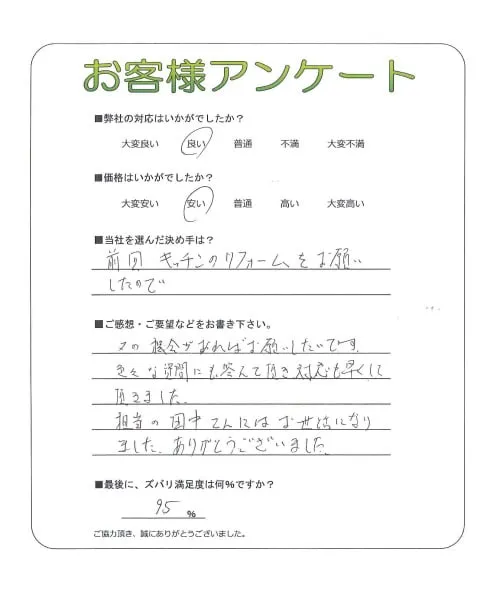 お客様アンケート
■弊社の対応はいかがでしたか？
大変良い 良い 普通 不満 大変不満
■価格はいかがでしたか？
大変安い 安い 普通 高い 大変高い
■当社を選んだ決め手は？
前回 キッチンのリフォームをお願い
したので
■ご感想・ご要望などをお書き下さい。
又の機会があればお願いしたいです。
色々な質問にも答えて頂き対応も早くして
頂きました。
担当の田中さんにはお世話になり
ました。ありがとうございました。
■最後に、ズバリ満足度は何％ですか？
95 ％
ご協力頂き、誠にありがとうございました。